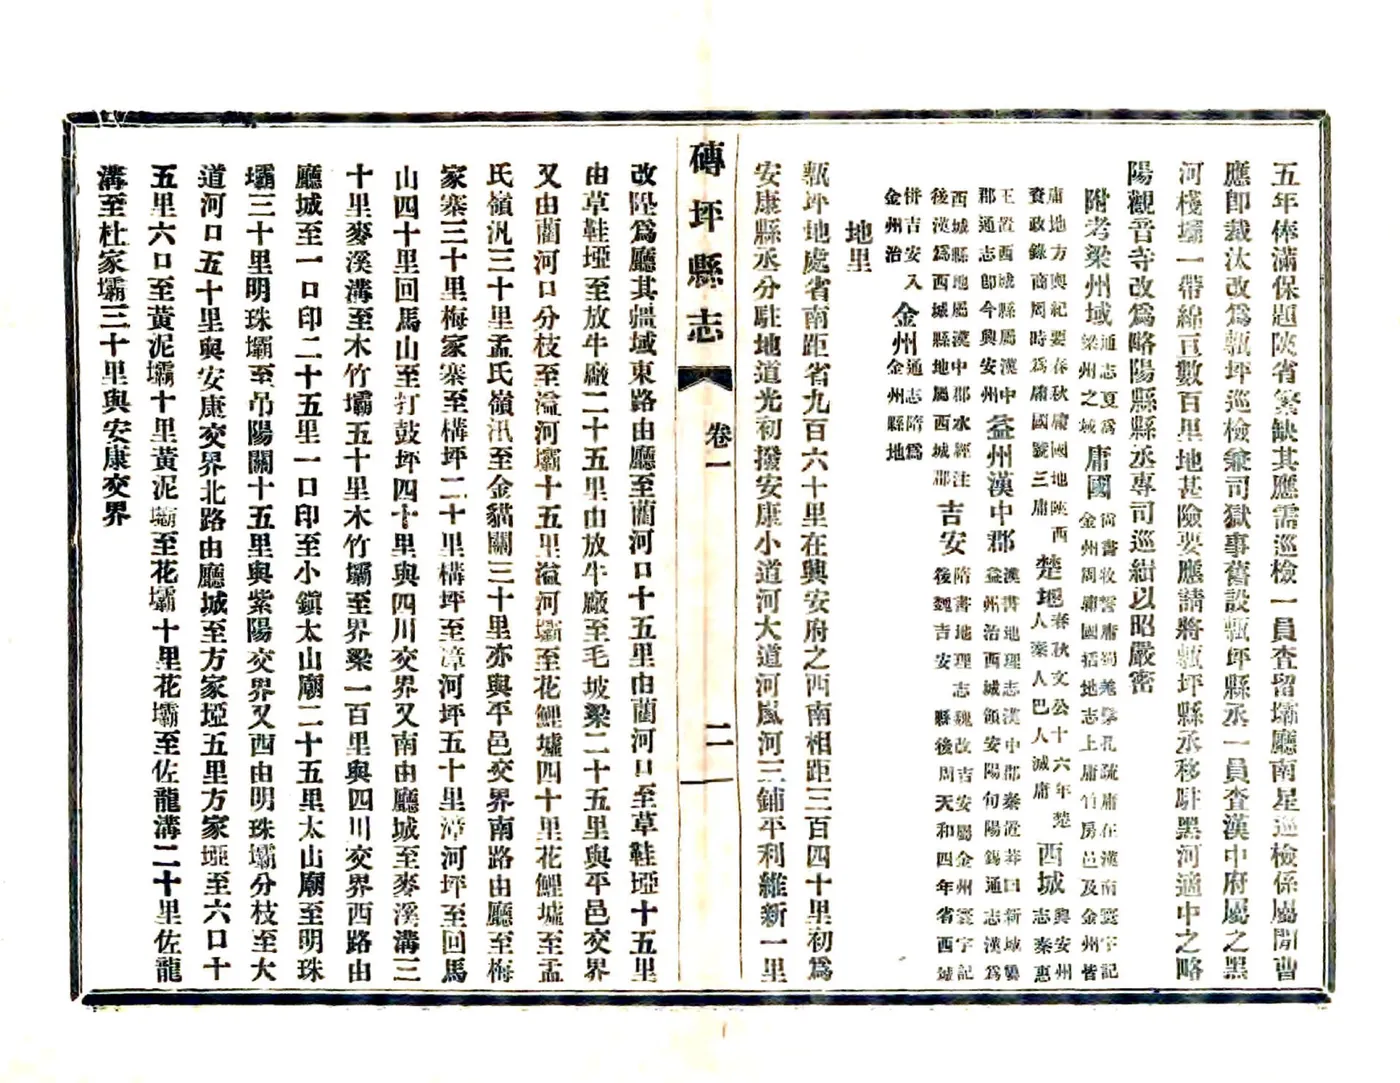 五年俸滿保題陝省繁缺其應需巡檢一員查留壩廳南星巡檢係屬閒曹
應卽裁汰改爲甎坪巡檢兼司獄事舊設甎坪縣丞一員查漢中府屬之黑
河棧壩一帶綿亘數百里地甚險要應請將甎坪縣丞移駐黑河適中之略
陽觀音寺改爲略陽縣丞專司巡緝以昭嚴密
附考梁州域通志夏爲梁州之域庸國尚書牧誓庸蜀羌髳孔疏庸在漢南寰宇記金州周庸國括地志上庸竹房邑及金州皆
庸地方輿紀要春秋庸國地陝西資政錄商周時爲庸國號三庸楚地春秋文公十六年楚人秦人巴人滅庸西城興安州志秦惠
王置西城縣屬漢中郡通志卽今興安州益州漢中郡漢書地理志漢中郡秦置莽曰新成屬益州治西城領安陽旬陽錫通志漢爲
西城縣地屬漢中郡水經注後漢爲西城縣地屬西城郡吉安隋書地理志魏改吉安屬金州寰宇記後魏吉安縣後周天和四年省西城
併吉安入金州治金州通志隋爲金州金州縣地
地里
甎坪地處省南距省九百六十里在興安府之西南相距三百四十里初爲
安康縣丞分駐地道光初撥安康小道河大道河嵐河三鋪平利維新一里
磚坪縣志
卷一
二
改陞爲廳其疆域東路由廳至藺河口十五里由藺河口至草鞋埡十五里
由草鞋埡至放牛廠二十五里由放牛廠至毛坡梁二十五里與平邑交界
又由藺河口分枝至溢河壩十五里溢河壩至花鯉墟四十里花鯉墟至孟
氏嶺汛三十里孟氏嶺汛至金貓關三十里亦與平邑交界南路由廳至梅
家寨三十里梅家寨至構坪二十里構坪至漳河坪五十里漳河坪至回馬
山四十里回馬山至打鼓坪四十里與四川交界又南由廳城至麥溪溝三
十里麥溪溝至木竹壩五十里木竹壩至界梁一百里與四川交界西路由
廳城至一口印二十五里一口印至小鎮太山廟二十五里太山廟至明珠
壩三十里明珠壩至吊陽關十五里與紫陽交界又西由明珠壩分枝至大
道河口五十里與安康交界北路由廳城至方家埡五里方家埡至六口十
五里六口至黃泥壩十里黃泥壩至花壩十里花壩至佐龍溝二十里佐龍
溝至杜家壩三十里與安康交界